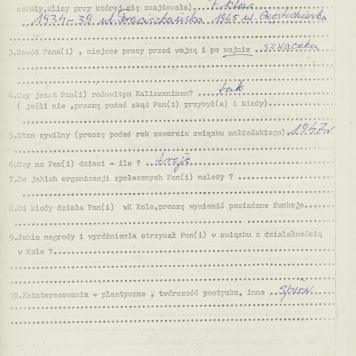 szkoły, ulicy przy której się znajdowała) 7 klas
1934-39 ul. Franciszkańska 1945 ul. Częstochowska
3.Zawód Pana(i) , miejsce pracy przed wojną i po wojnie szwaczka
4.Czy jest Pan(i) rodowitym Kaliszaninem? tak
( jeśli nie ,proszę podać skąd Pan(i) przybył(a) i kiedy)
5.Stan cywilny (proszę podać rok zawarcia związku małżeńskiego) 1947r
6.Czy ma Pan(i) dzieci - ile ? troje
7.Do jakich organizacji społecznych Pan(i) należy ?
8.Od kiedy działa Pan(i) wK Kole,proszę wymienić posiadane funkcje
9.Jakie nagrody i wyróżnienia otrzymał Pan(i) w związku z działalnością
w Kole ?
10.Zainteresowania - plastyczne , twórczość poetycka, inne śpiew